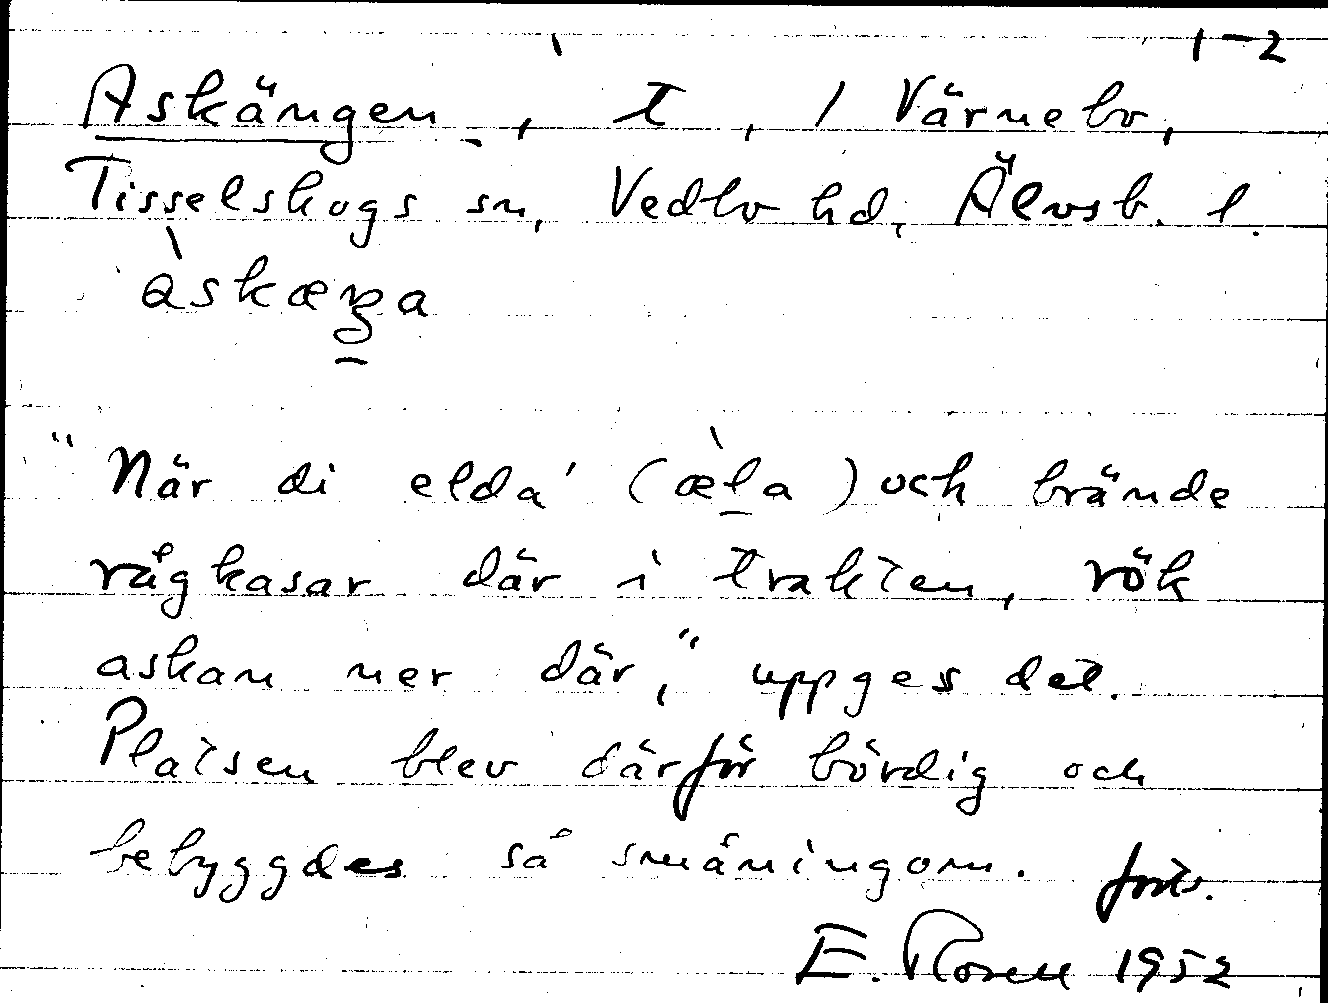 1-2
Askängen, t, / Värnebo,
Tisselskogs sn, Vedbo hd, Älvsb. l.
àskæŋa
"När di elda' (æ̀la) och brände
rågkasar där i trakten, rök
askan ner där," uppges det.
Platsen blev därför bördig och
bebyggdes så småningom. forts.
E. Rosell 1952